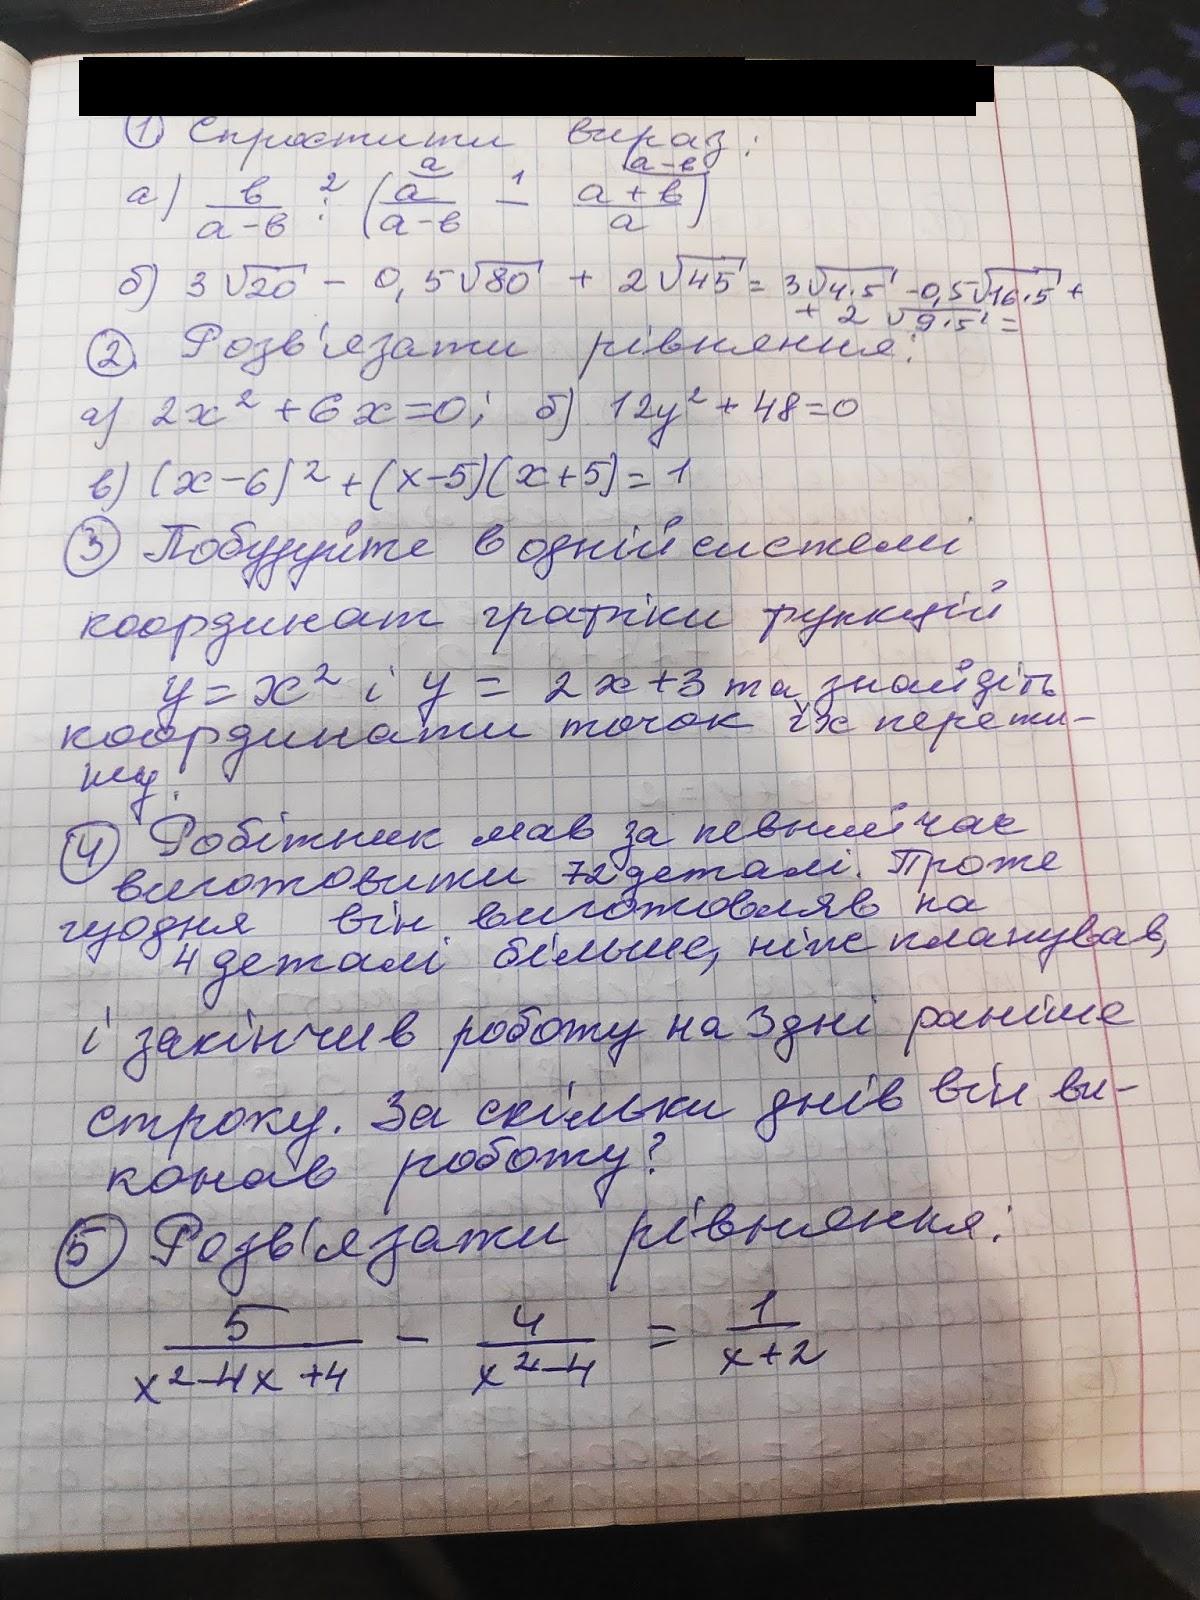 ① Спростити вираз:
а) в/(а-в) :² (а/(а-в) \а -¹ (а+в)/а \а-в)
б) 3√20 - 0,5√80 + 2√45 = 3√4·5 - 0,5√16·5 +
+ 2√9·5 =
② Розв'язати рівняння:
а) 2x² + 6x = 0; б) 12y² + 48 = 0
в) (x-6)² + (x-5)(x+5) = 1
③ Побудуйте в одній системі
координат графіки функцій
y = x² і y = 2x+3 та знайдіть
координати точок їх перети-
ну.
④ Робітник мав за певний час
виготовити 72 деталі. Проте
щодня він виготовляв на
4 деталі більше, ніж планував,
і закінчив роботу на 3 дні раніше
строку. За скільки днів він ви-
конав роботу?
⑤ Розв'язати рівняння:
5/(x²-4x+4) - 4/(x²-4) = 1/(x+2)